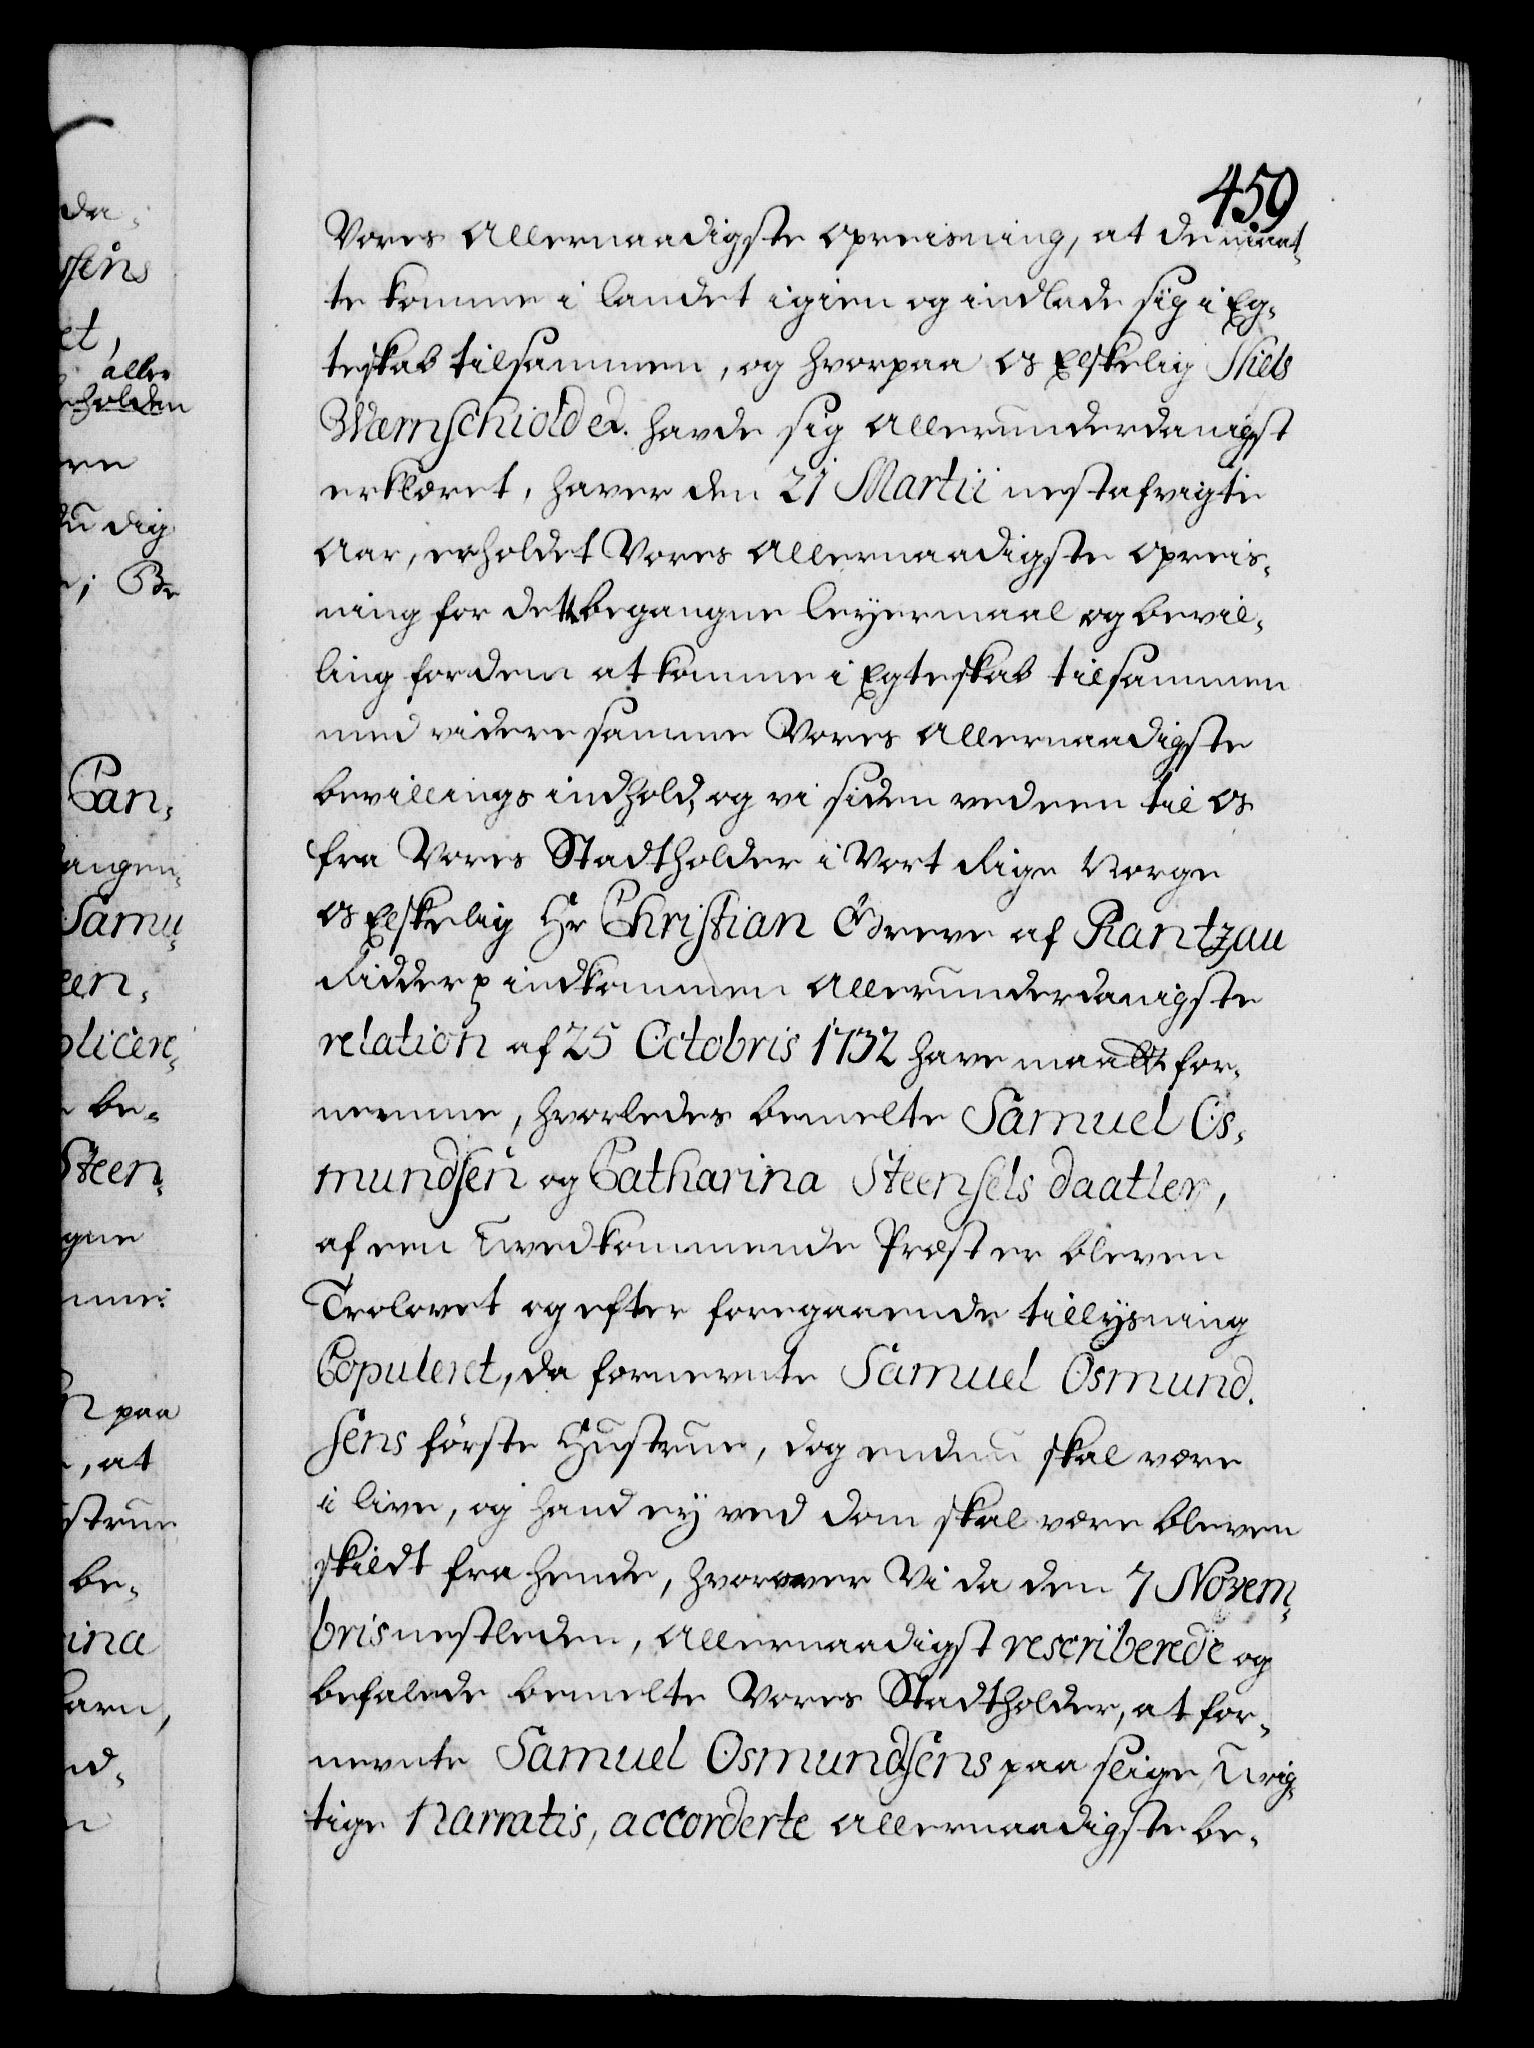 459
Vores Allernaadigste opreisning, at de maat-
te komme i landet igien og indlade sig i Eg-
teskab tilsammen, og hvorpaa os Elskelig Niels
Wærnschiold etc. havde sig Allerunderdanigst
erklæret, haver den 21 Martii nestafvigte
Aar, erholdet Vores Allernaadigste opreis-
ning for dette begangne leyermaal og bevil-
ling for dem at komme i Egteskab tilsammen
med videre samme Vores Allernaadigste
bevillings indhold, og vi siden ved een til os
fra Vores Stadtholder i Vort Rige Norge
os Elskelig Hr Christian Greve af Rantzau
Ridder p indkommen Allerunderdanigste
relation af 25 Octobris 1732 have maatt for-
nemme, hvorledes bemelte Samuel Os-
mundsen og Catharina Steensels daatter,
af een Uvedkommende Præst er bleven
Trolovet og efter foregaaende tillysning
Copuleret, da fornevnte Samuel Osmund-
sens förste Hustrue, dog endnu skal være
i live, og hand ey ved dom skal være bleven
skildt fra hende, hvorover Vi da den 7 Novem-
bris nestleden, Allernaadigst rescriberede og
befalede bemelte Vores Stadtholder, at for-
nevnte Samuel Osmundsens paa slige Urig-
tige Narratis, accorderte Allernaadigste be-